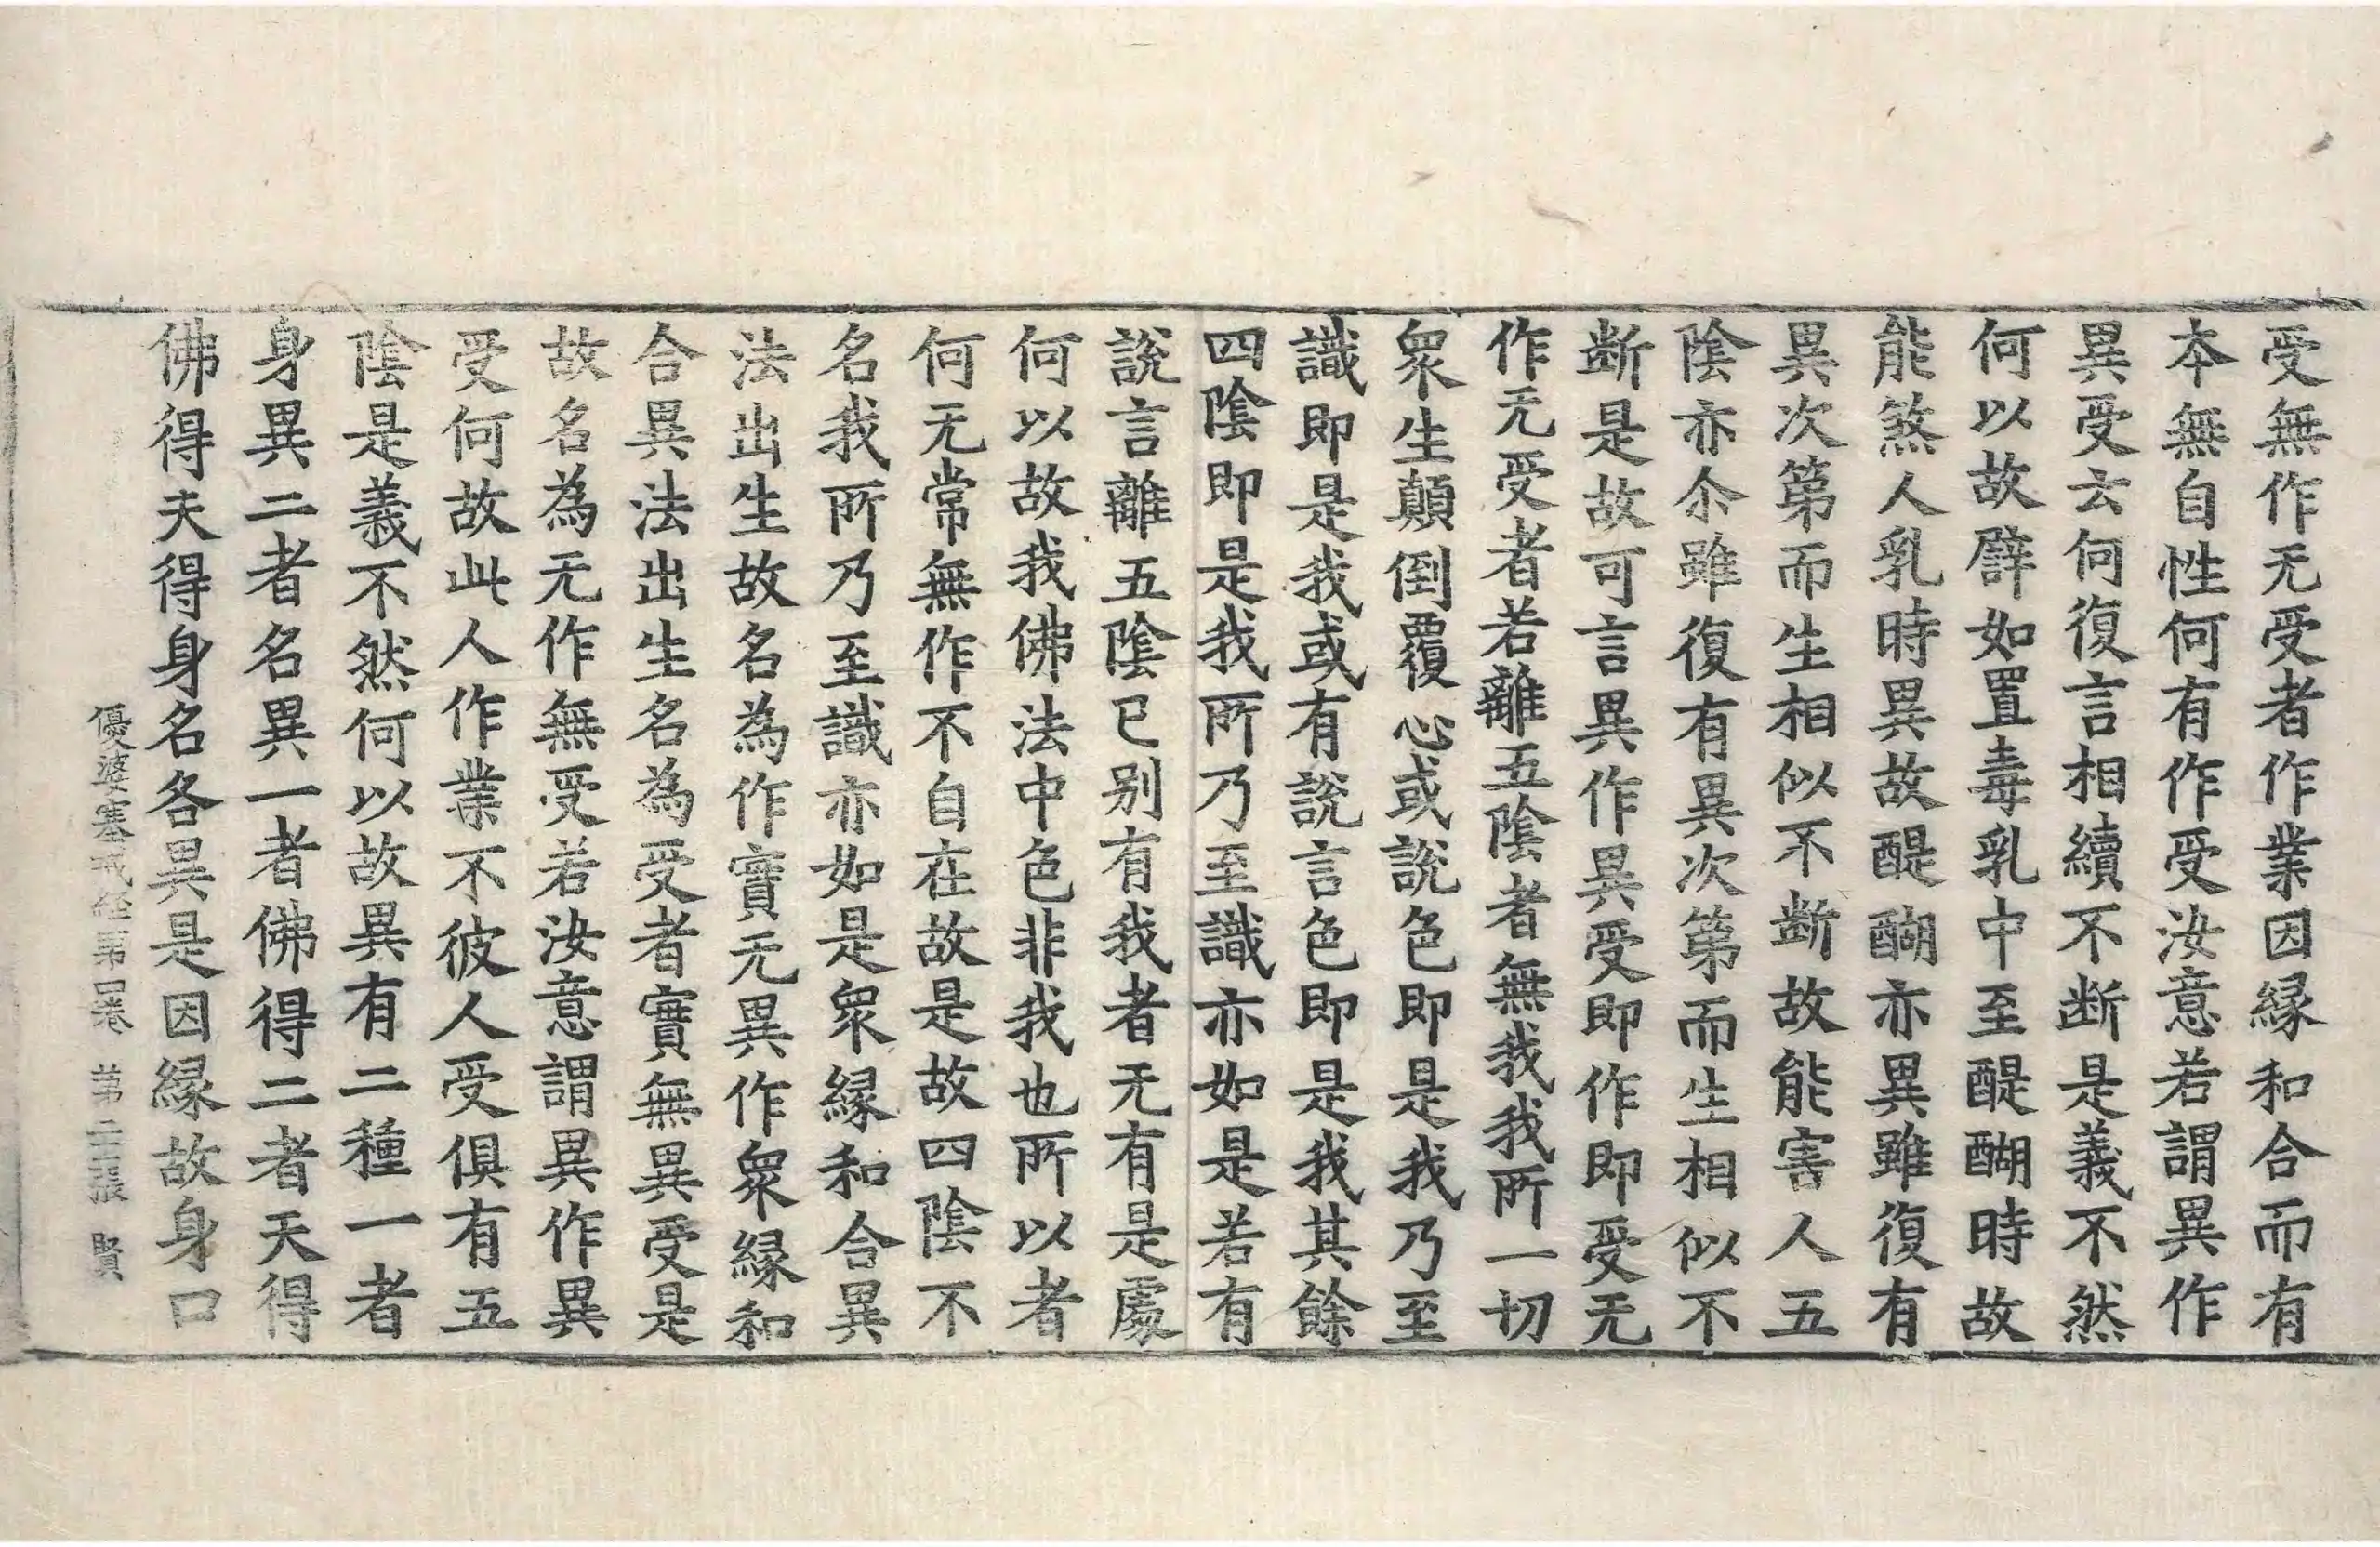 受無作无受者作業因縁和合而有
本無自性何有作受汝意若謂異作
異受云何復言相續不断是義不然
何以故辟如置毒乳中至醍醐時故
能煞人乳時異故醍醐亦異雖復有
異次第而生相似不断故能害人五
陰亦尒雖復有異次第而生相似不
断是故可言異作異受即作即受无
作无受者若離五陰者無我我所一切
衆生顛倒覆心或說色即是我乃至
識即是我或有說言色即是我其餘
四陰即是我所乃至識亦如是若有
說言離五陰已别有我者无有是處
何以故我佛法中色非我也所以者
何无常無作不自在故是故四陰不
名我所乃至識亦如是衆縁和合異
法出生故名為作實无異作衆縁和
合異法出生名為受者實無異受是
故名為无作無受若汝意謂異作異
受何故此人作業不彼人受俱有五
陰是義不然何以故異有二種一者
身異二者名異一者佛得二者天得
佛得夫得身名各異是因縁故身口
優婆塞戒經第四卷 第二十二張 賢